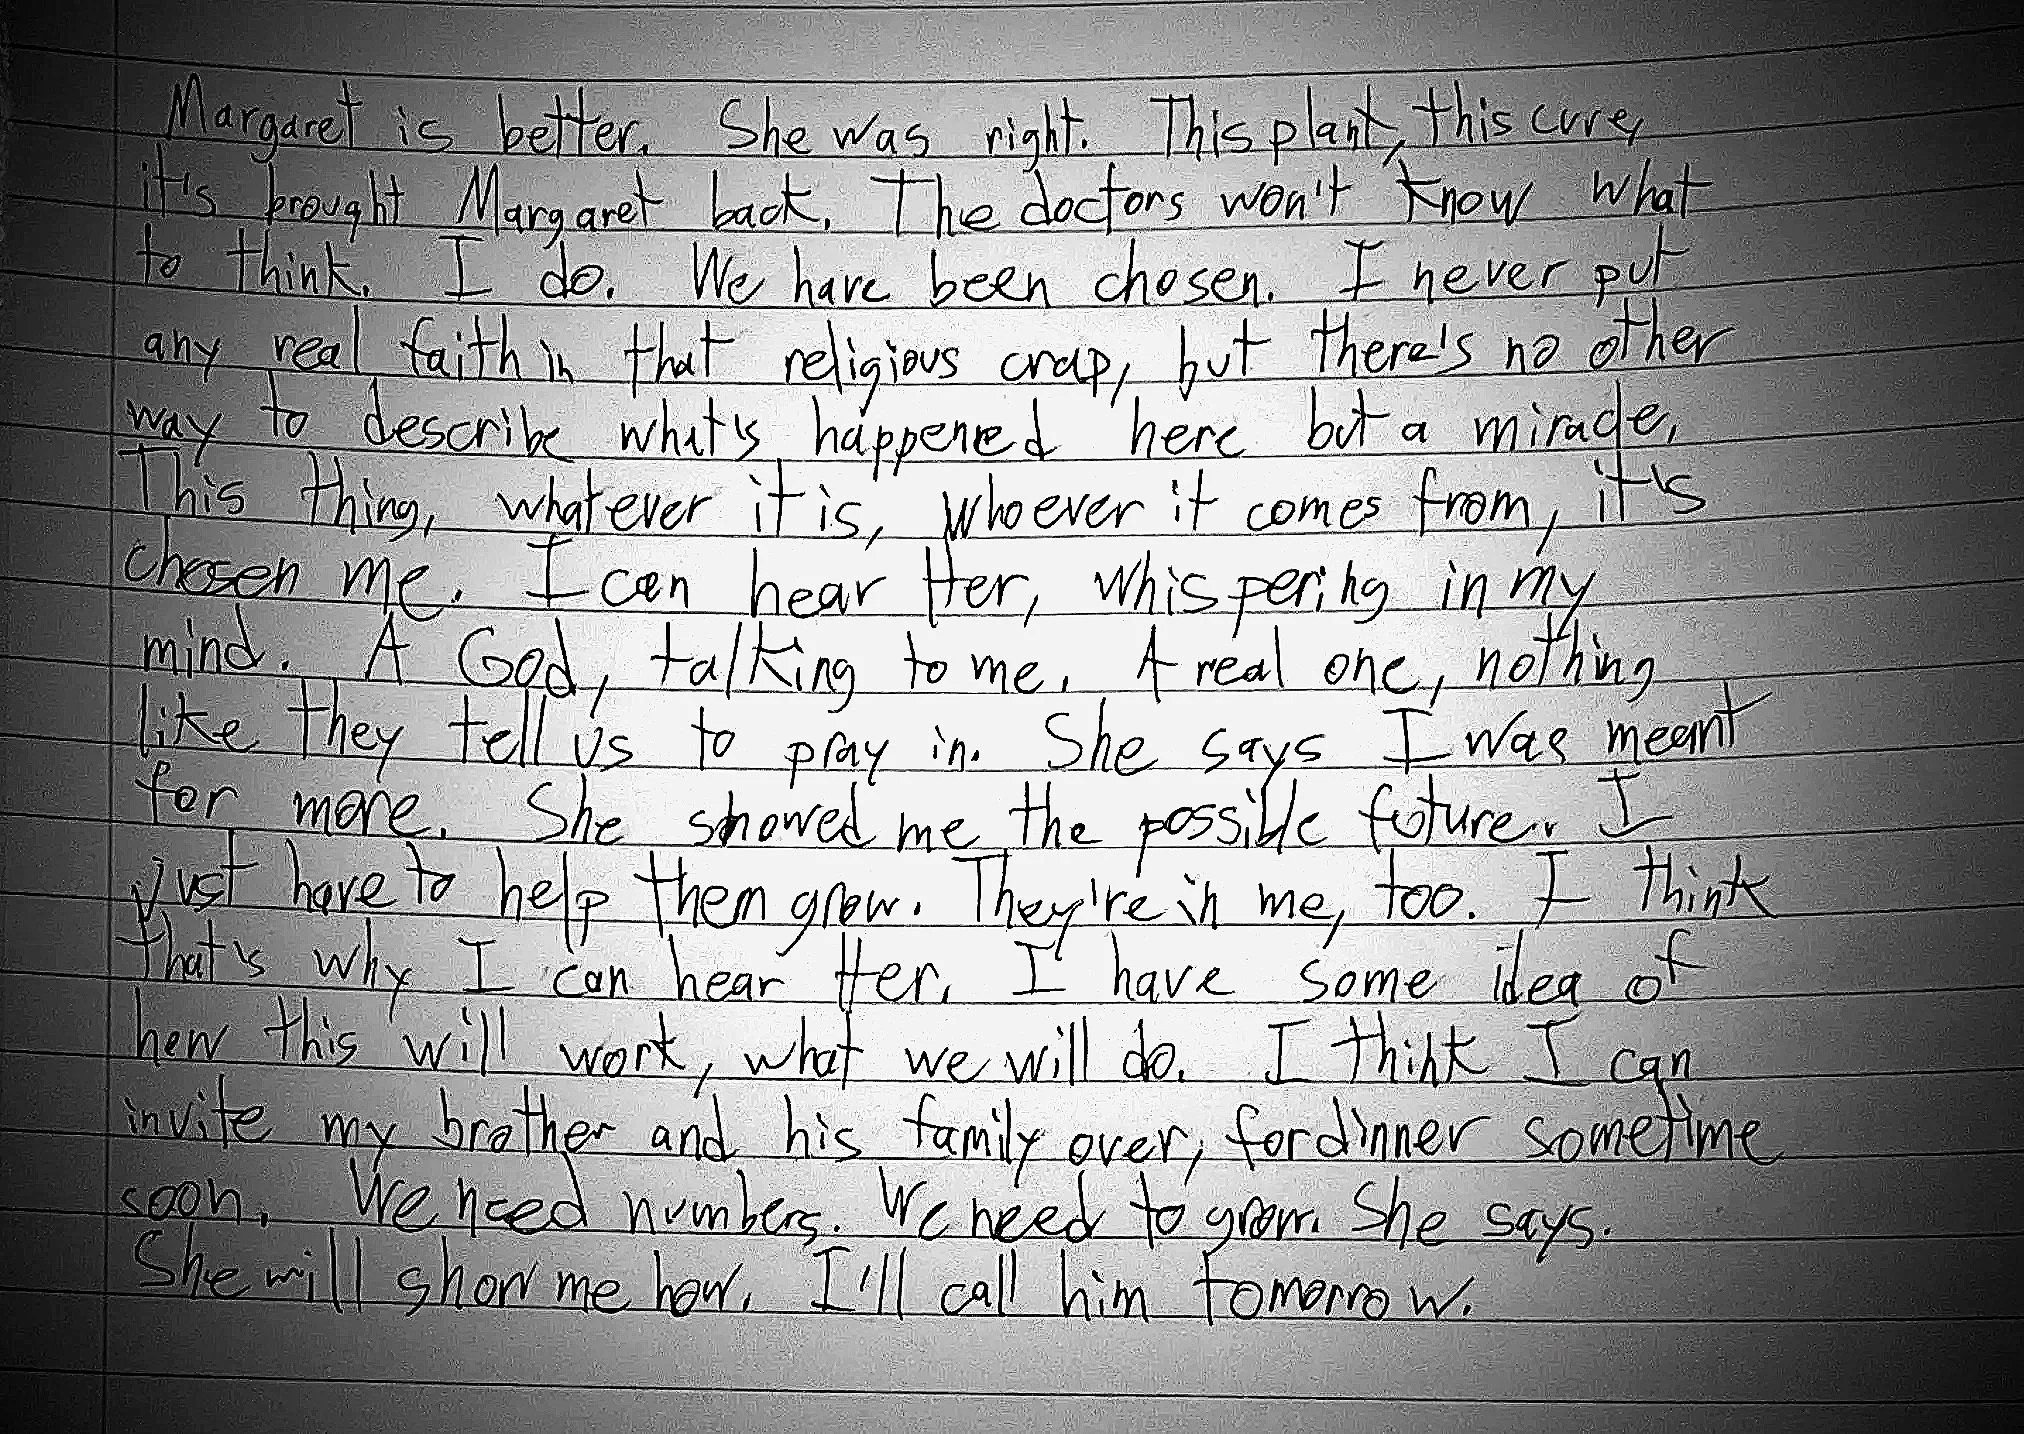 Margaret is better. She was right. This plant, this cure,
it's brought Margaret back. The doctors won't know what
to think. I do. We have been chosen. I never put
any real faith in that religious crap, but there's no other
way to describe what's happened here but a miracle.
This thing, whatever it is, whoever it comes from, it's
chosen me. I can hear Her, whispering in my
mind. A God, talking to me. A real one, nothing
like they tell us to pray in. She says I was meant
for more. She showed me the possible future. I
just have to help them grow. They're in me, too. I think
that's why I can hear Her. I have some idea of
how this will work, what we will do. I think I can
invite my brother and his family over, for dinner sometime
soon. We need numbers. We need to grow. She says.
She will show me how. I'll call him tomorrow.